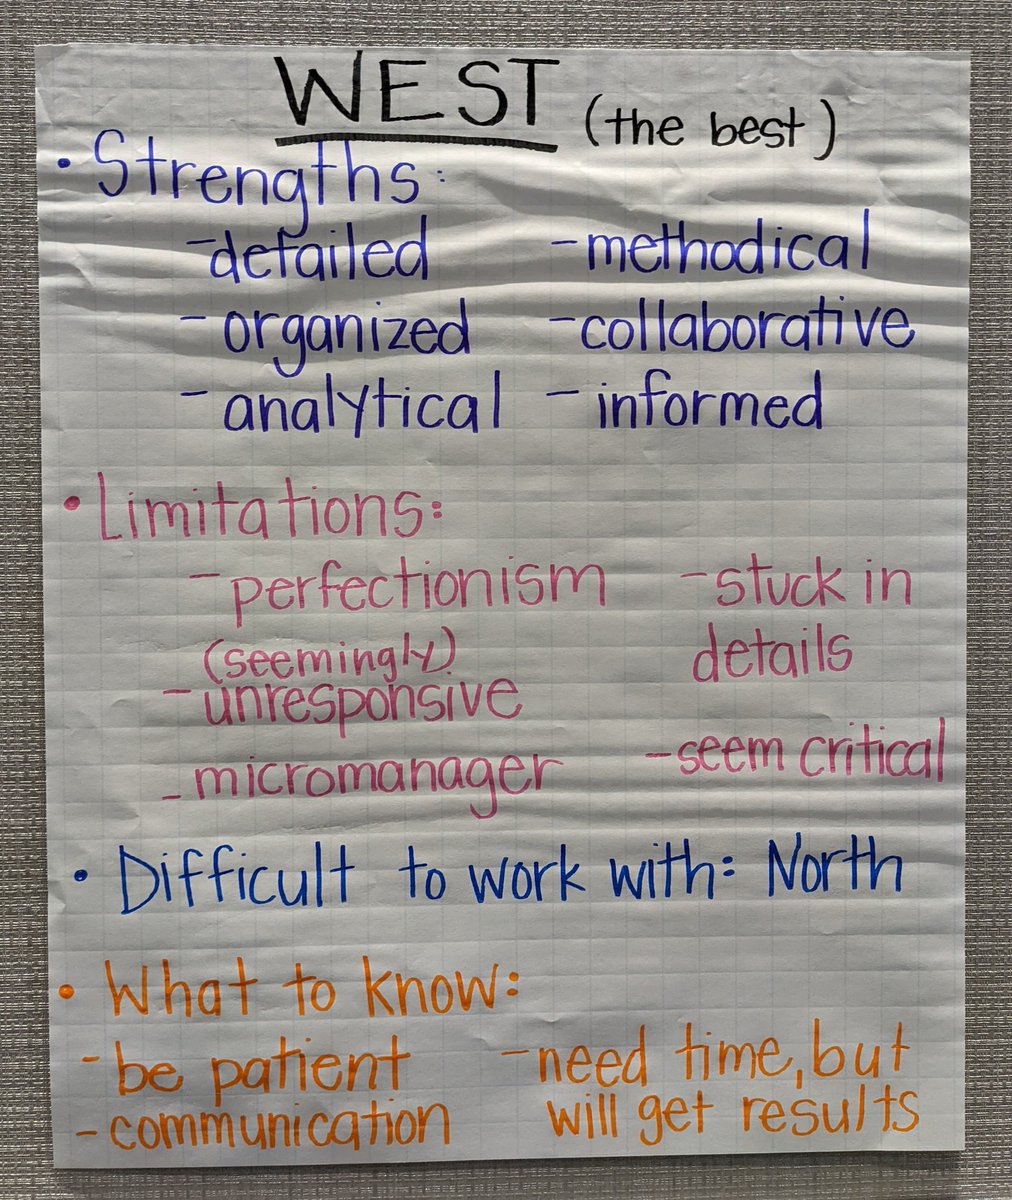 WEST (the best)
• Strengths:
- detailed - methodical
- organized - collaborative
- analytical - informed
• Limitations:
- perfectionism - stuck in
(seemingly) details
- unresponsive
- micromanager - seem critical
• Difficult to work with: North
• What to know:
- be patient - need time, but
- communication will get results